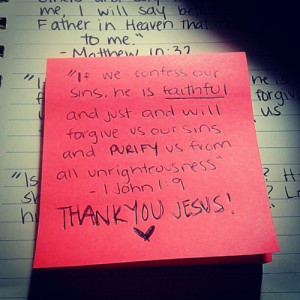 me, I will say bef
Father in Heaven that
to me."
- Matthew 10:32
"If we confess our
sins, he is faithful
and just and will
forgive us our sins
and PURIFY us from
all unrighteousness"
- 1 John 1:9
THANK YOU JESUS!
forgiv
us
"Is
s
h